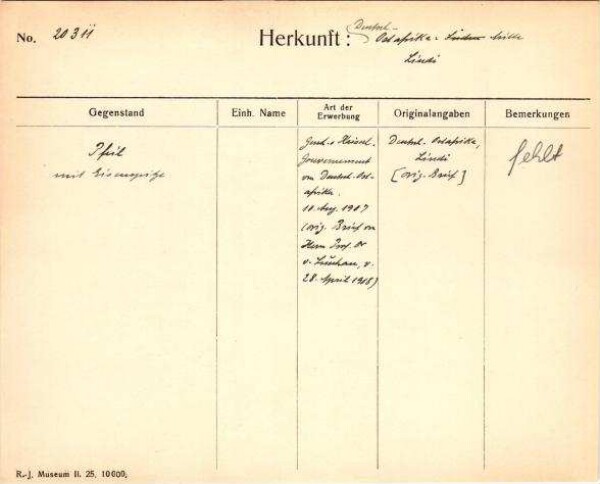 No. 20311
Herkunft: Deutsch-
Ostafrika. Süden. Mitte
Lindi
Gegenstand
Einh. Name
Art der
Erwerbung
Originalangaben
Bemerkungen
Pfeil
mit Eisenspitze
Gesch. v Kaiserl.
Gouvernement
von Deutsch-Ost-
afrika.
10. Aug. 1907
(orig. Brief von
Herrn Prof. Dr
v. Luschan, v.
28. April 1908)
Deutsch-Ostafrika,
Lindi
[orig. Brief]
fehlt
R.-J. Museum II. 25. 10000.